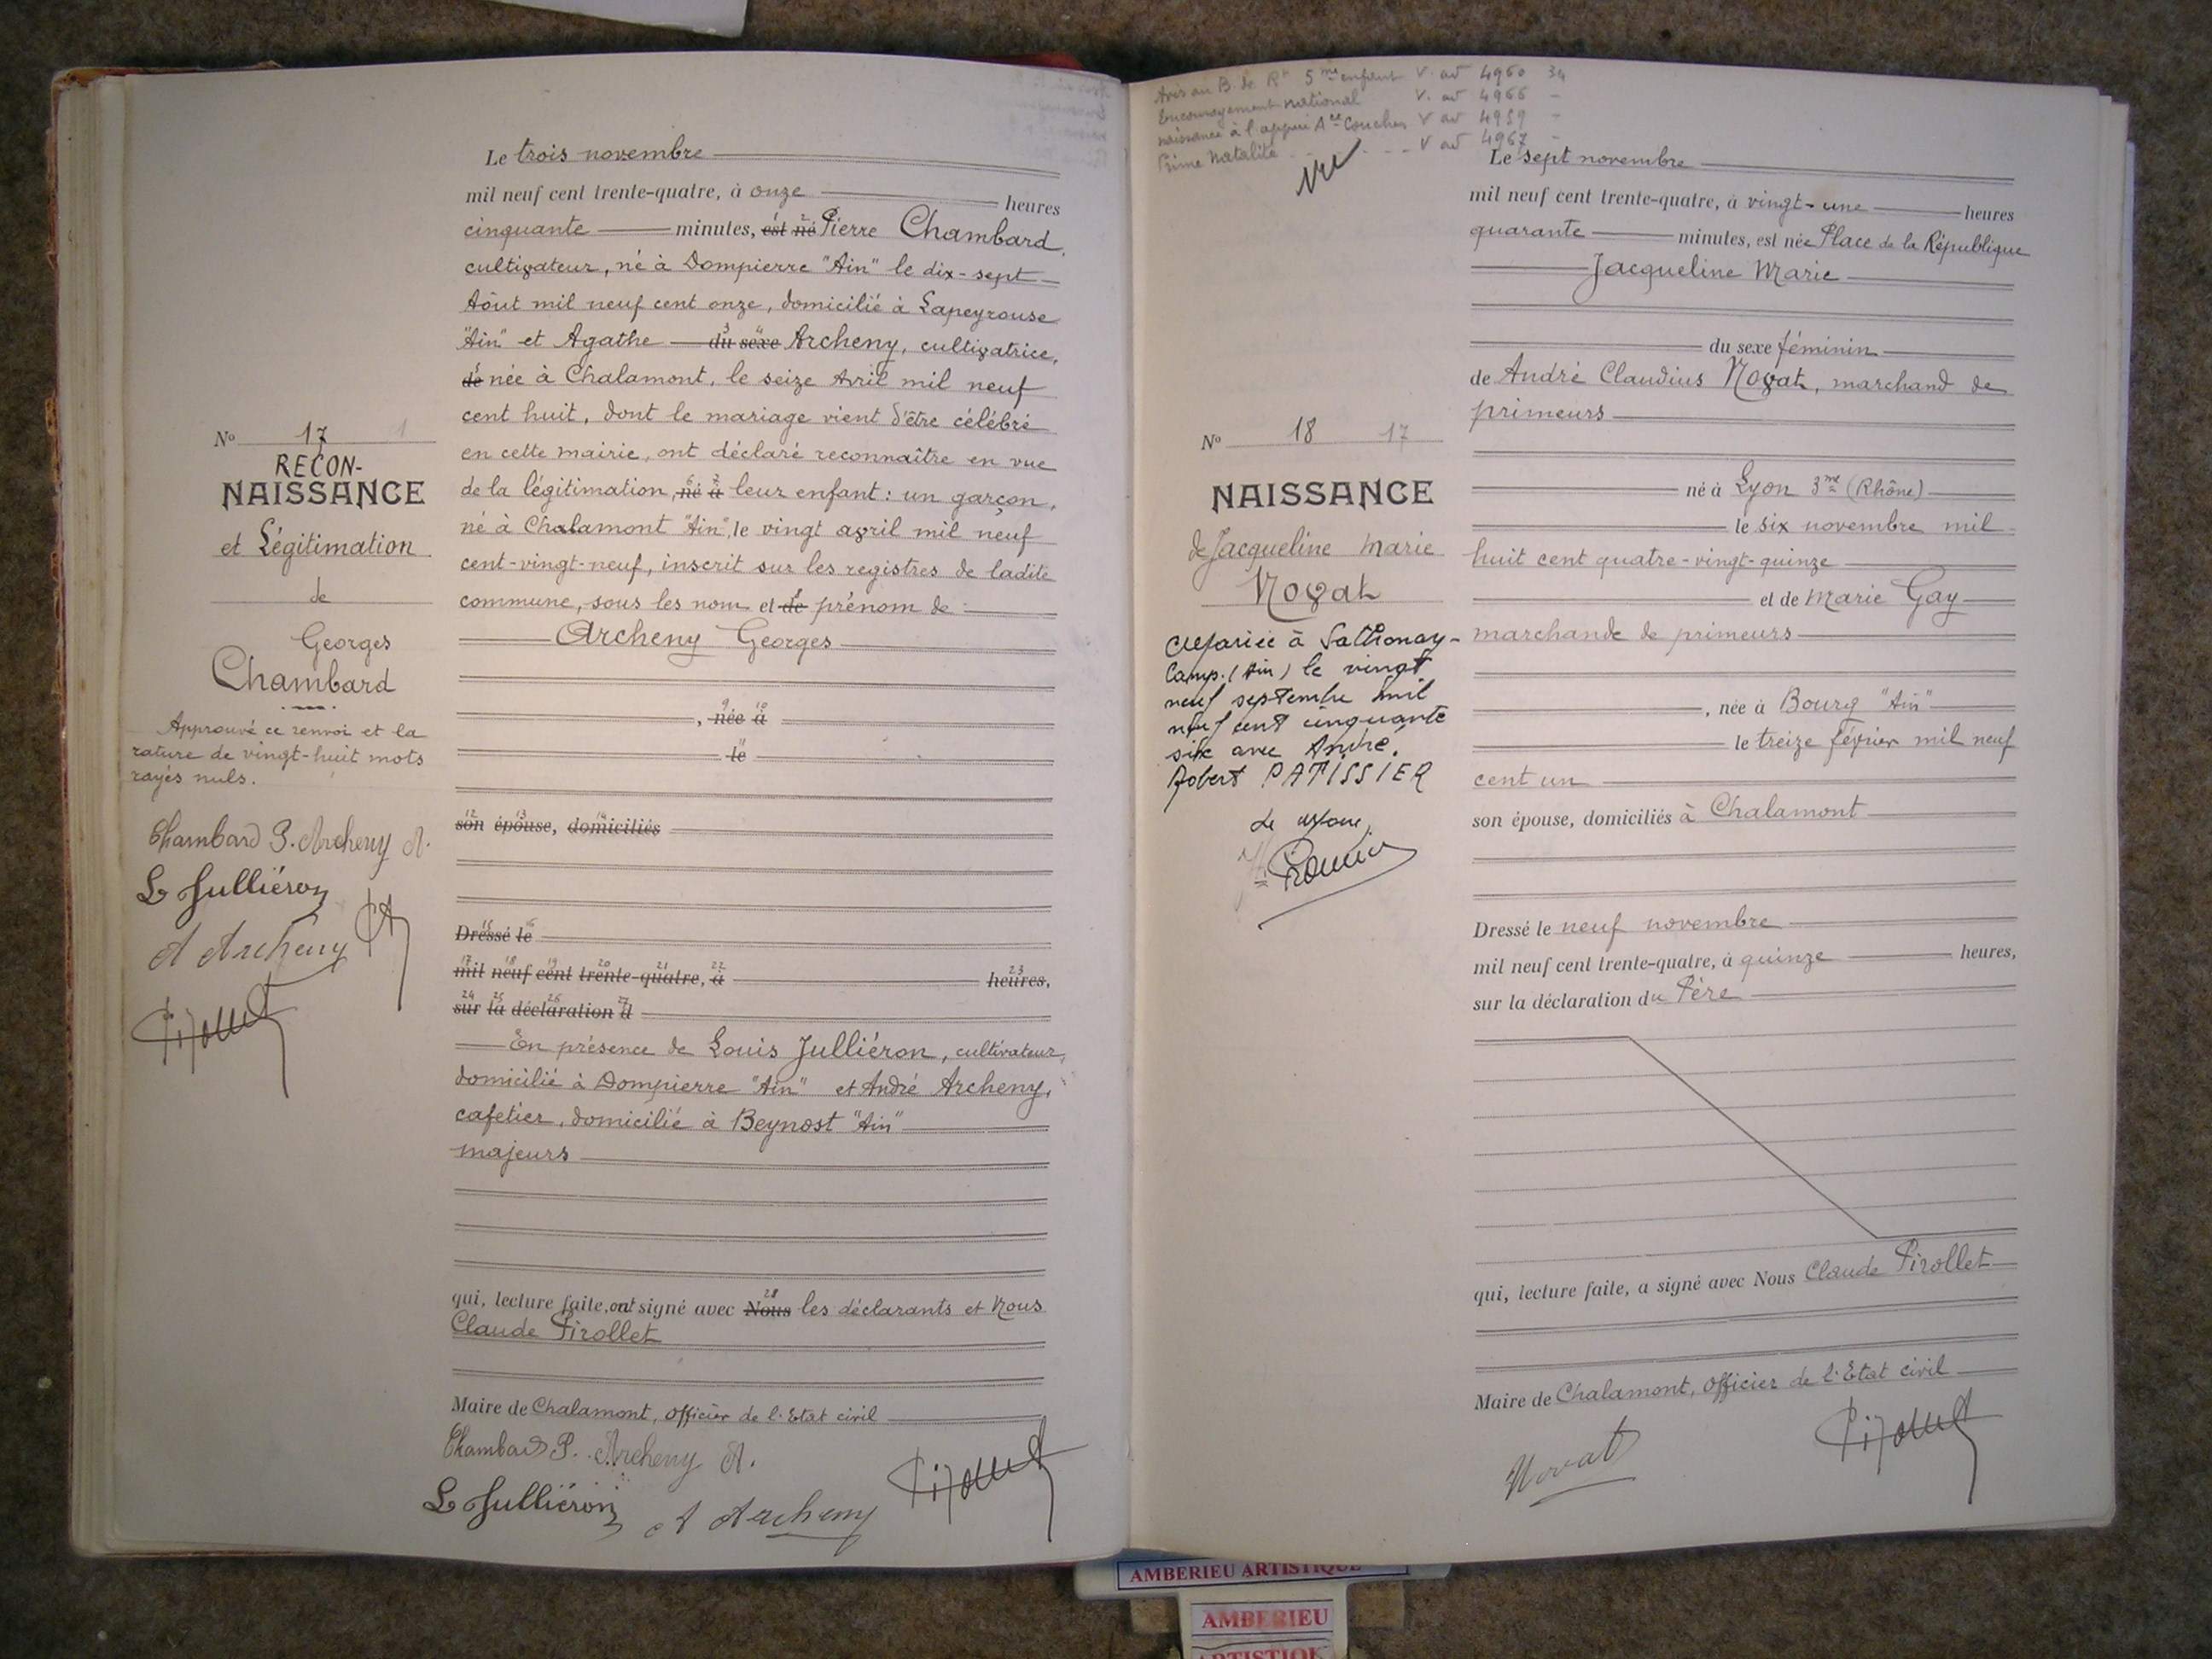 Le trois novembre
mil neuf cent trente-quatre, à onze heures
cinquante minutes, est né Pierre Chambard,
cultivateur, né à Dompierre "Ain" le dix-sept
Aôut mil neuf cent onze, domicilié à Lapeyrouse
"Ain" et Agathe du sexe Archeny, cultivatrice,
de née à Chalamont, le seize Avril mil neuf
cent huit, dont le mariage vient d'être célébré
en cette mairie, ont déclaré reconnaître en vue
de la légitimation, né à leur enfant : un garçon,
né à Chalamont "Ain", le vingt avril mil neuf
cent-vingt-neuf, inscrit sur les registres de ladite
commune, sous les nom et de prénom de :
Archeny Georges
, née à
le
son épouse, domiciliés
Dressé le
mil neuf cent trente-quatre, à heures,
sur la déclaration d
En présence de Louis Julliéron, cultivateur,
domicilié à Dompierre "Ain" et André Archeny,
cafetier, domicilié à Beynost "Ain"
majeurs
qui, lecture faite, ont signé avec Nous les déclarants et Nous
Claude Pirollet
Maire de Chalamont, Officier de l'Etat civil
Chambard P. Archeny A.
L Julliéron A Archeny Pirollet
No 17 1
RECON-
NAISSANCE
et Légitimation
de
Georges
Chambard
Approuvé ce renvoi et la
rature de vingt-huit mots
rayés nuls.
Chambard P. Archeny A.
L Julliéron
A Archeny
Pirollet
Avis au B. de Rt 5me enfant V. av 4960 34
Encouragement national V. av 4966 -
naissance à l'appui Ace Couches V av 4959 -
Prime Natalité V av 4967 -
vu
Le sept novembre
mil neuf cent trente-quatre, à vingt-une heures
quarante minutes, est née Place de la République
Jacqueline Marie
du sexe féminin
de André Claudius Novat, marchand de
primeurs
né à Lyon 3me (Rhône)
le six novembre mil
huit cent quatre-vingt-quinze
et de Marie Gay
marchande de primeurs
, née à Bourg "Ain"
le treize février mil neuf
cent un
son épouse, domiciliés à Chalamont
Dressé le neuf novembre
mil neuf cent trente-quatre, à quinze heures,
sur la déclaration du Père
qui, lecture faite, a signé avec Nous Claude Pirollet
Maire de Chalamont, Officier de l'Etat civil
Novat Pirollet
No 18 17
NAISSANCE
de Jacqueline Marie
Novat
Mariée à Sathonay-
Camp. (Ain) le vingt
neuf septembre mil
neuf cent cinquante
six avec André,
Robert PATISSIER
Le Maire,
AMBERIEU ARTISTIQUE
AMBERIEU
ARTISTIQU